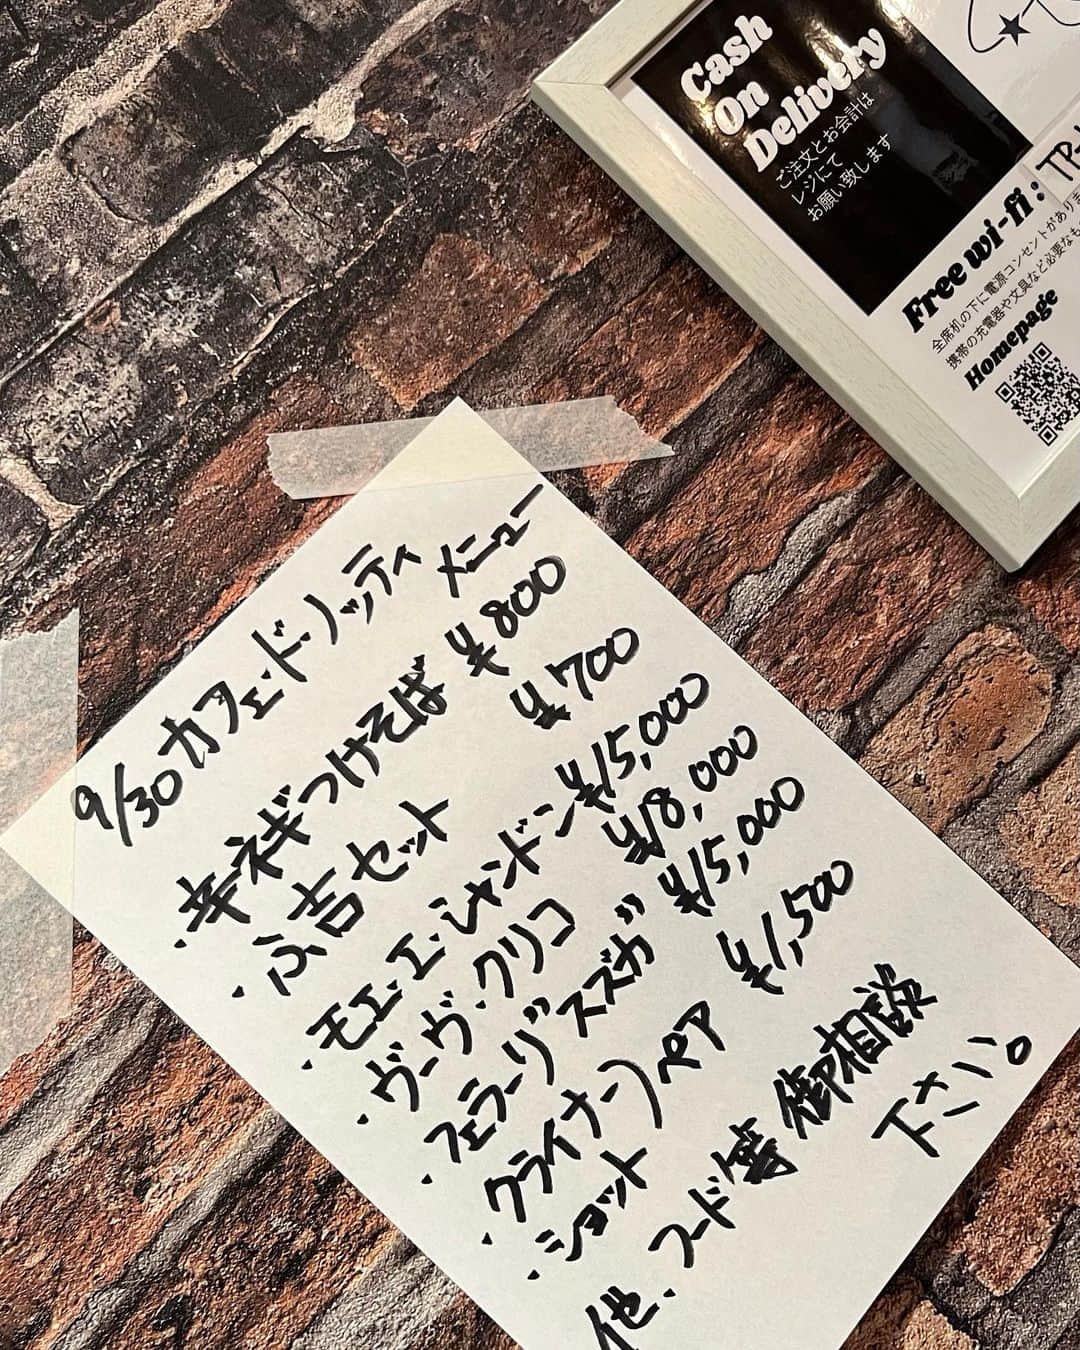 Cash
On
Delivery
ご注文とお会計は
レジにて
お願い致します
Free wi-fi : TP-
全席机の下に電源コンセントがありま
携帯の充電器や文具など必要なも
Homepage
9/30 カフェ・ド・ノッティ メニュー
・辛ネギつけそば ¥800
・ふ吉セット ¥700
・モエ・エ・シャンドン ¥15,000
・ヴーヴ・クリコ ¥18,000
・フェラーリ"スズカ" ¥15,000
・クライナー)ペア ¥1,500
・ショット
他、フード等御相談
下さい。